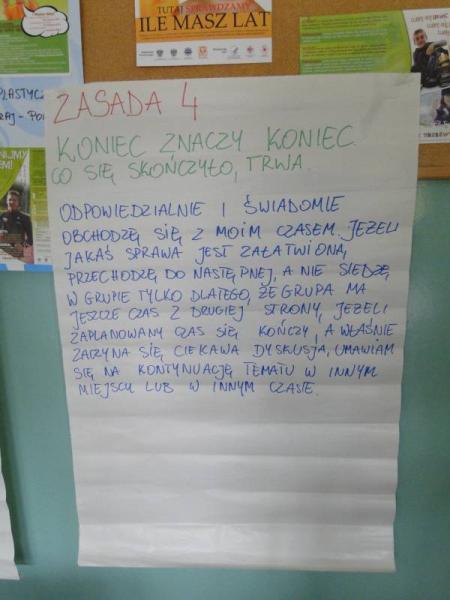 TUTAJ SPRAWDZAMY
ILE MASZ LAT
PLASTYCZ
RAJ - POL
ZASADA 4
KONIEC ZNACZY KONIEC.
CO SIĘ SKOŃCZYŁO, TRWA.
ODPOWIEDZIALNIE I ŚWIADOMIE
OBCHODZĘ SIĘ Z MOIM CZASEM. JEŻELI
JAKAŚ SPRAWA JEST ZAŁATWIONA,
PRZECHODZĘ DO NASTĘPNEJ, A NIE SIEDZĘ
W GRUPIE TYLKO DLATEGO, ŻE GRUPA MA
JESZCZE CZAS. Z DRUGIEJ STRONY, JEŻELI
ZAPLANOWANY CZAS SIĘ KOŃCZY, A WŁAŚNIE
ZACZYNA SIĘ CIEKAWA DYSKUSJA, UMAWIAM
SIĘ NA KONTYNUACJĘ TEMATU W INNYM
MIEJSCU LUB W INNYM CZASIE.